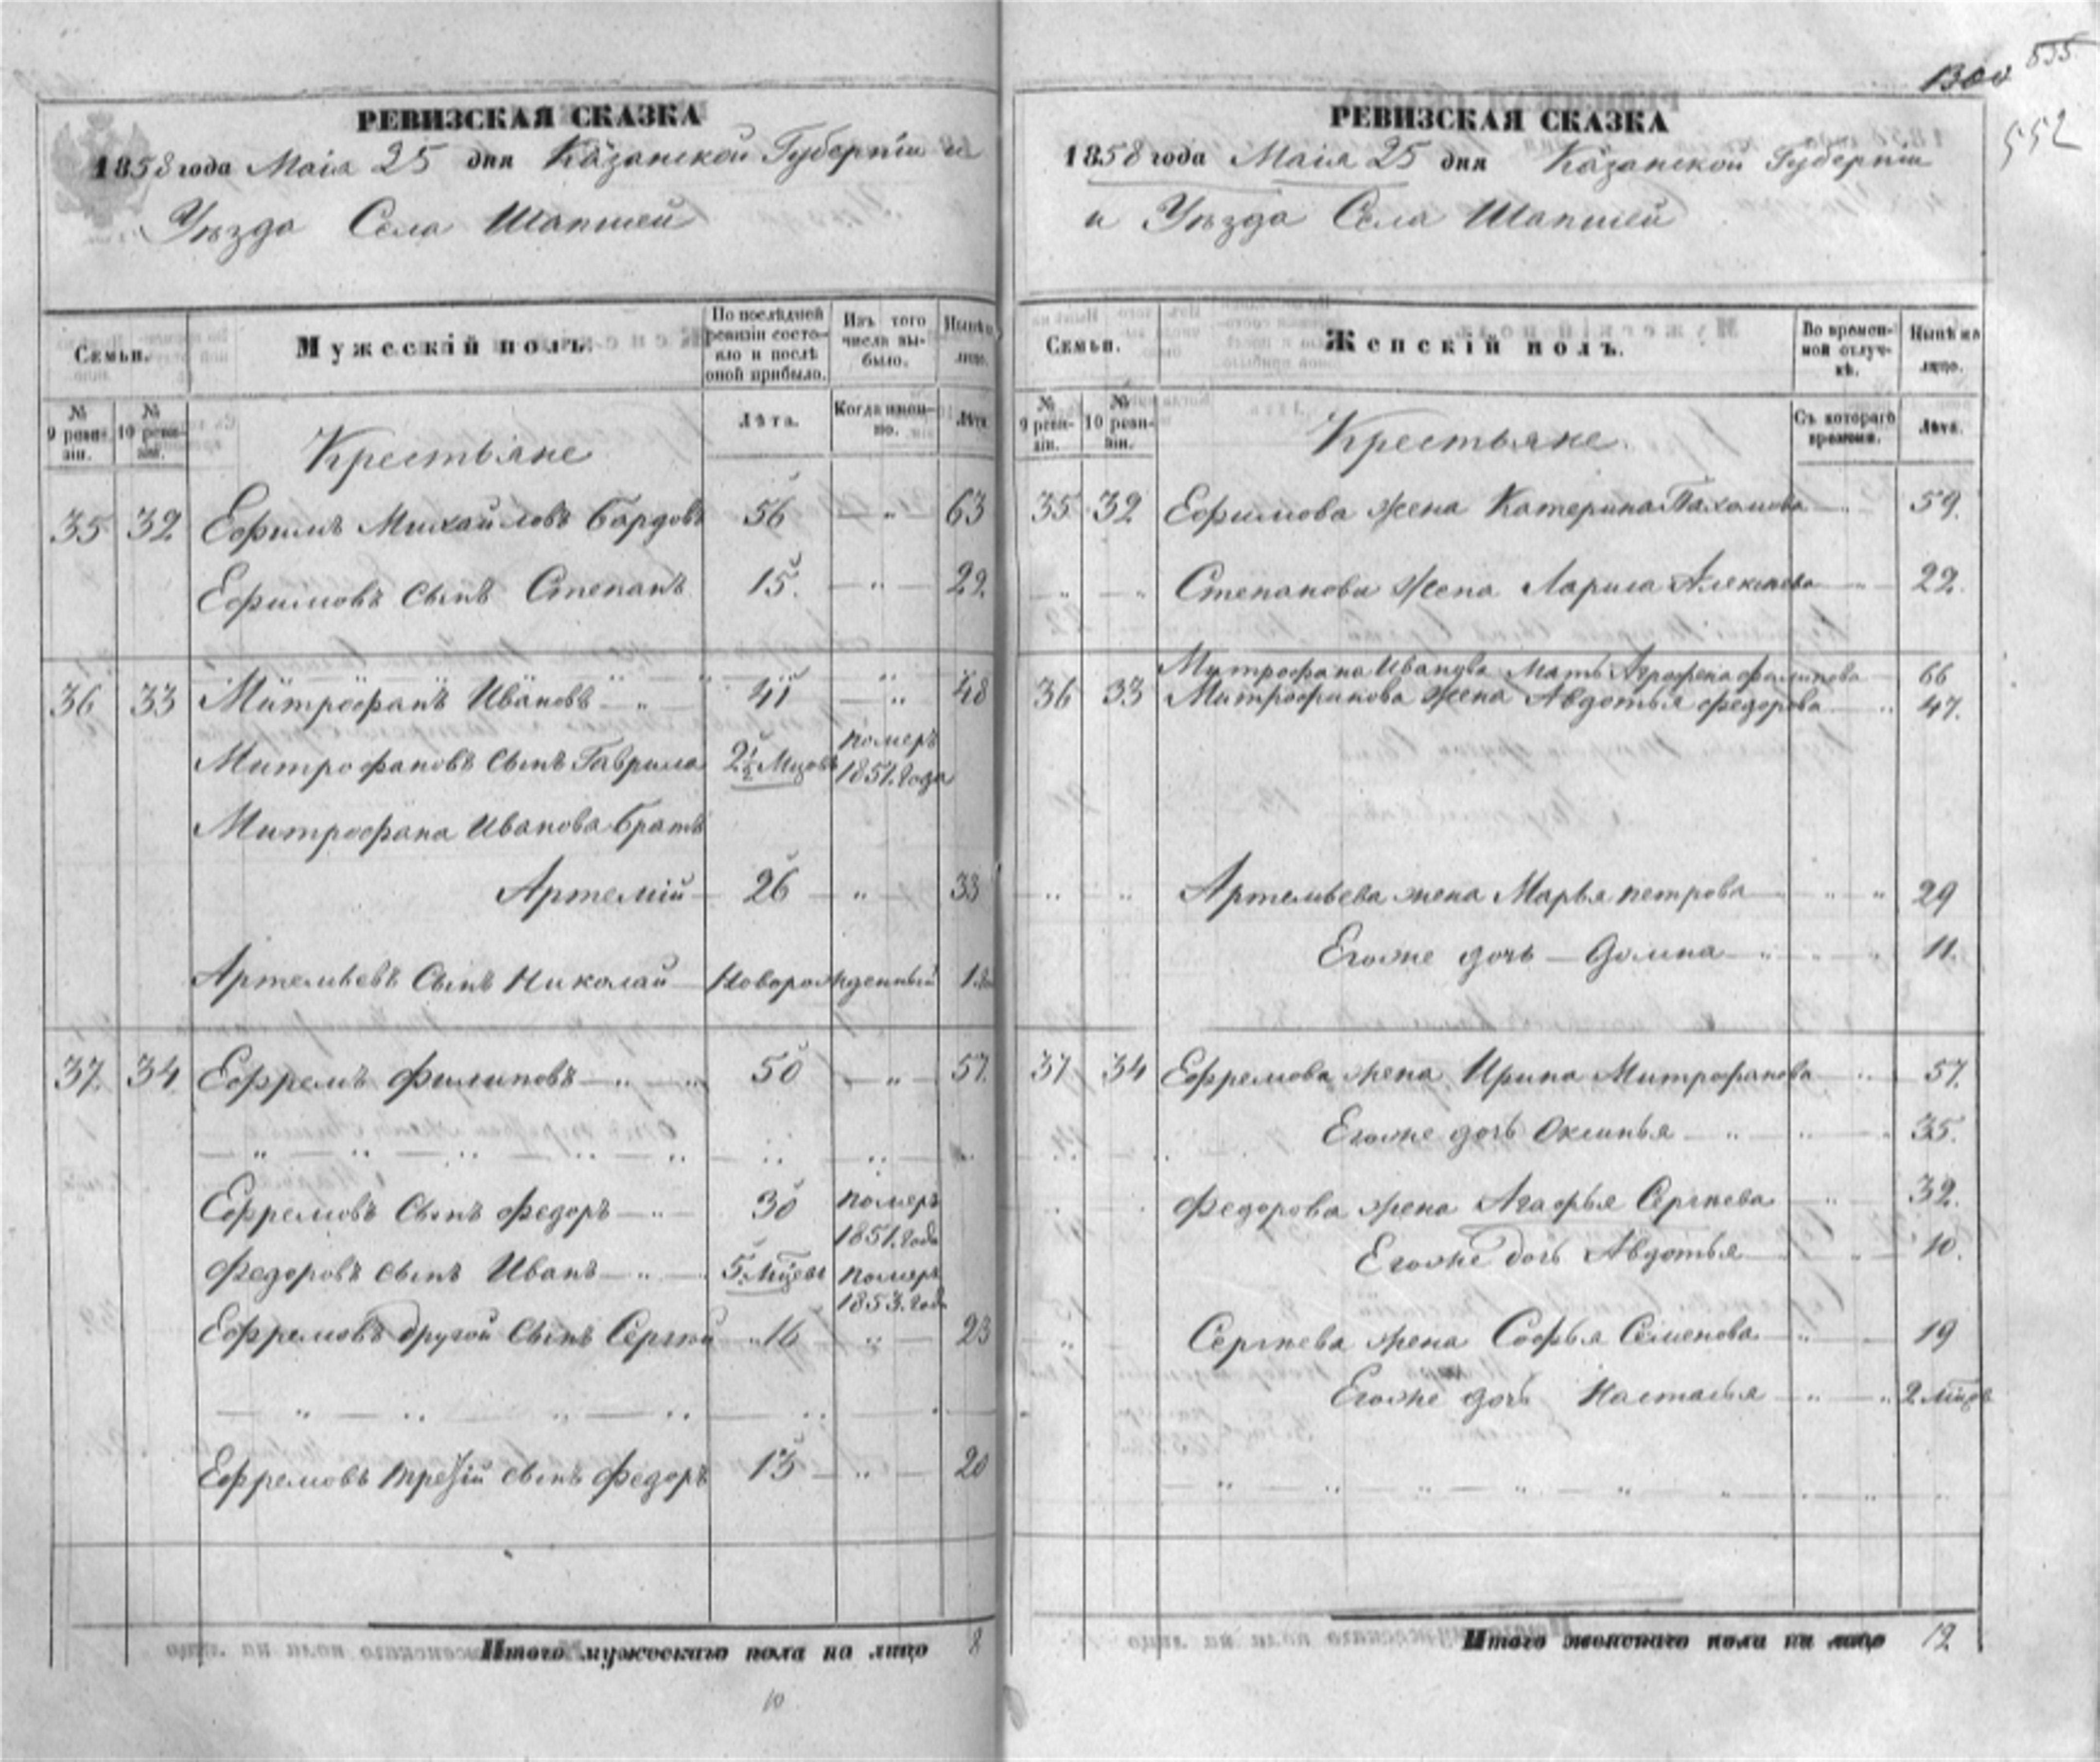 РЕВИЗСКАЯ СКАЗКА
1858 года Маія 25 дня Казанской Губерніи и
Уѣзда Села Шапшей
Семьи.
Мужескій полъ.
По послѣдней ревизіи состояло и послѣ оной прибыло.
Изъ того числа выбыло.
Нынѣ на лицо.
№ 9 ревизіи.
№ 10 ревизіи.
Крестьяне
Лѣта.
Когда именно.
Лѣта.
35 32 Ефимъ Михайловъ Бардовъ 56 — „ — 63
Ефимовъ сынъ Степанъ 15. — „ — 22.
36 33 Митрофанъ Ивановъ — „ — 41 — „ — 48
Митрофановъ сынъ Гаврила 2½ Мцовъ померъ 1851. года
Митрофана Иванова братъ
Артемій — 26 — „ — 33
Артемьевъ Сынъ Николай — Новорожденный 1.
37. 34 Ефремъ Филиповъ — „ — „ 50 — „ — 57.
Ефремовъ Сынъ Федоръ — „ — 30 померъ 1851. года
Федоровъ сынъ Иванъ — „ — 5. Мцевъ померъ 1853. года
Ефремовъ другой Сынъ Сергѣй „ 16 „ — 23
Ефремовъ третій сынъ Федоръ 13 — „ — 20
Итого мужескаго пола на лицо 8
10
555
552
РЕВИЗСКАЯ СКАЗКА
1858 года Маія 25 дня Казанской Губерніи
и Уѣзда Села Шапшей
Семьи.
Женскій полъ.
Во временной отлучкѣ.
Нынѣ на лицо.
№ 9 ревизіи.
№ 10 ревизіи.
Крестьяне.
Съ котораго времени.
Лѣта.
35 32 Ефимова жена Катерина Пахомова — „ 59.
„ — „ Степанова жена Лариса Алексѣева — „ — 22.
Митрофана Иванова Мать Агрофена Филипова 66
36 33 Митрофанова жена Авдотья Федорова — „ 47.
„ „ Артемьева жена Марья Петрова — „ — „ 29
Егоже дочь — Домна — „ — „ 11.
37 34 Ефремова жена Ирина Митрофанова — „ 57.
Егоже дочь Оксинья — „ — „ — „ 35.
Федорова жена Агафья Сергѣева — „ — 32.
Егоже дочь Авдотья — „ — 10.
„ Сергѣева жена Софья Семенова — „ — 19
Егоже дочь Настасья — „ — „ 2 мцов
Итого женскаго пола на лицо 12